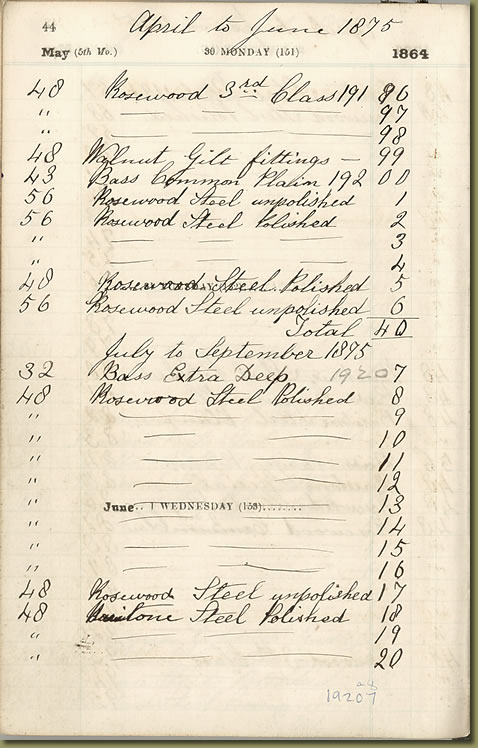 44
April to June 1875
May (5th Mo.) 30 MONDAY (151) 1864
48 Rosewood 3rd Class 191 96
" — — — 97
" — — — 98
48 Walnut Gilt fittings — 99
43 Bass Common Plain 192 00
56 Rosewood Steel unpolished 1
56 Rosewood Steel Polished 2
" — — — 3
" — — — 4
48 Rosewood Steel Polished 5
56 Rosewood Steel unpolished 6
Total 40
July to September 1875
32 Bass Extra Deep 1920 7
48 Rosewood Steel Polished 8
" — — — 9
" — — — 10
" — — — 11
" — — — 12
June .. 1 WEDNESDAY (153)........
" — — — 13
" — — — 14
" — — — 15
" — — — 16
48 Rosewood Steel unpolished 17
48 Baritone Steel Polished 18
" — — — 19
" — — — 20
19207